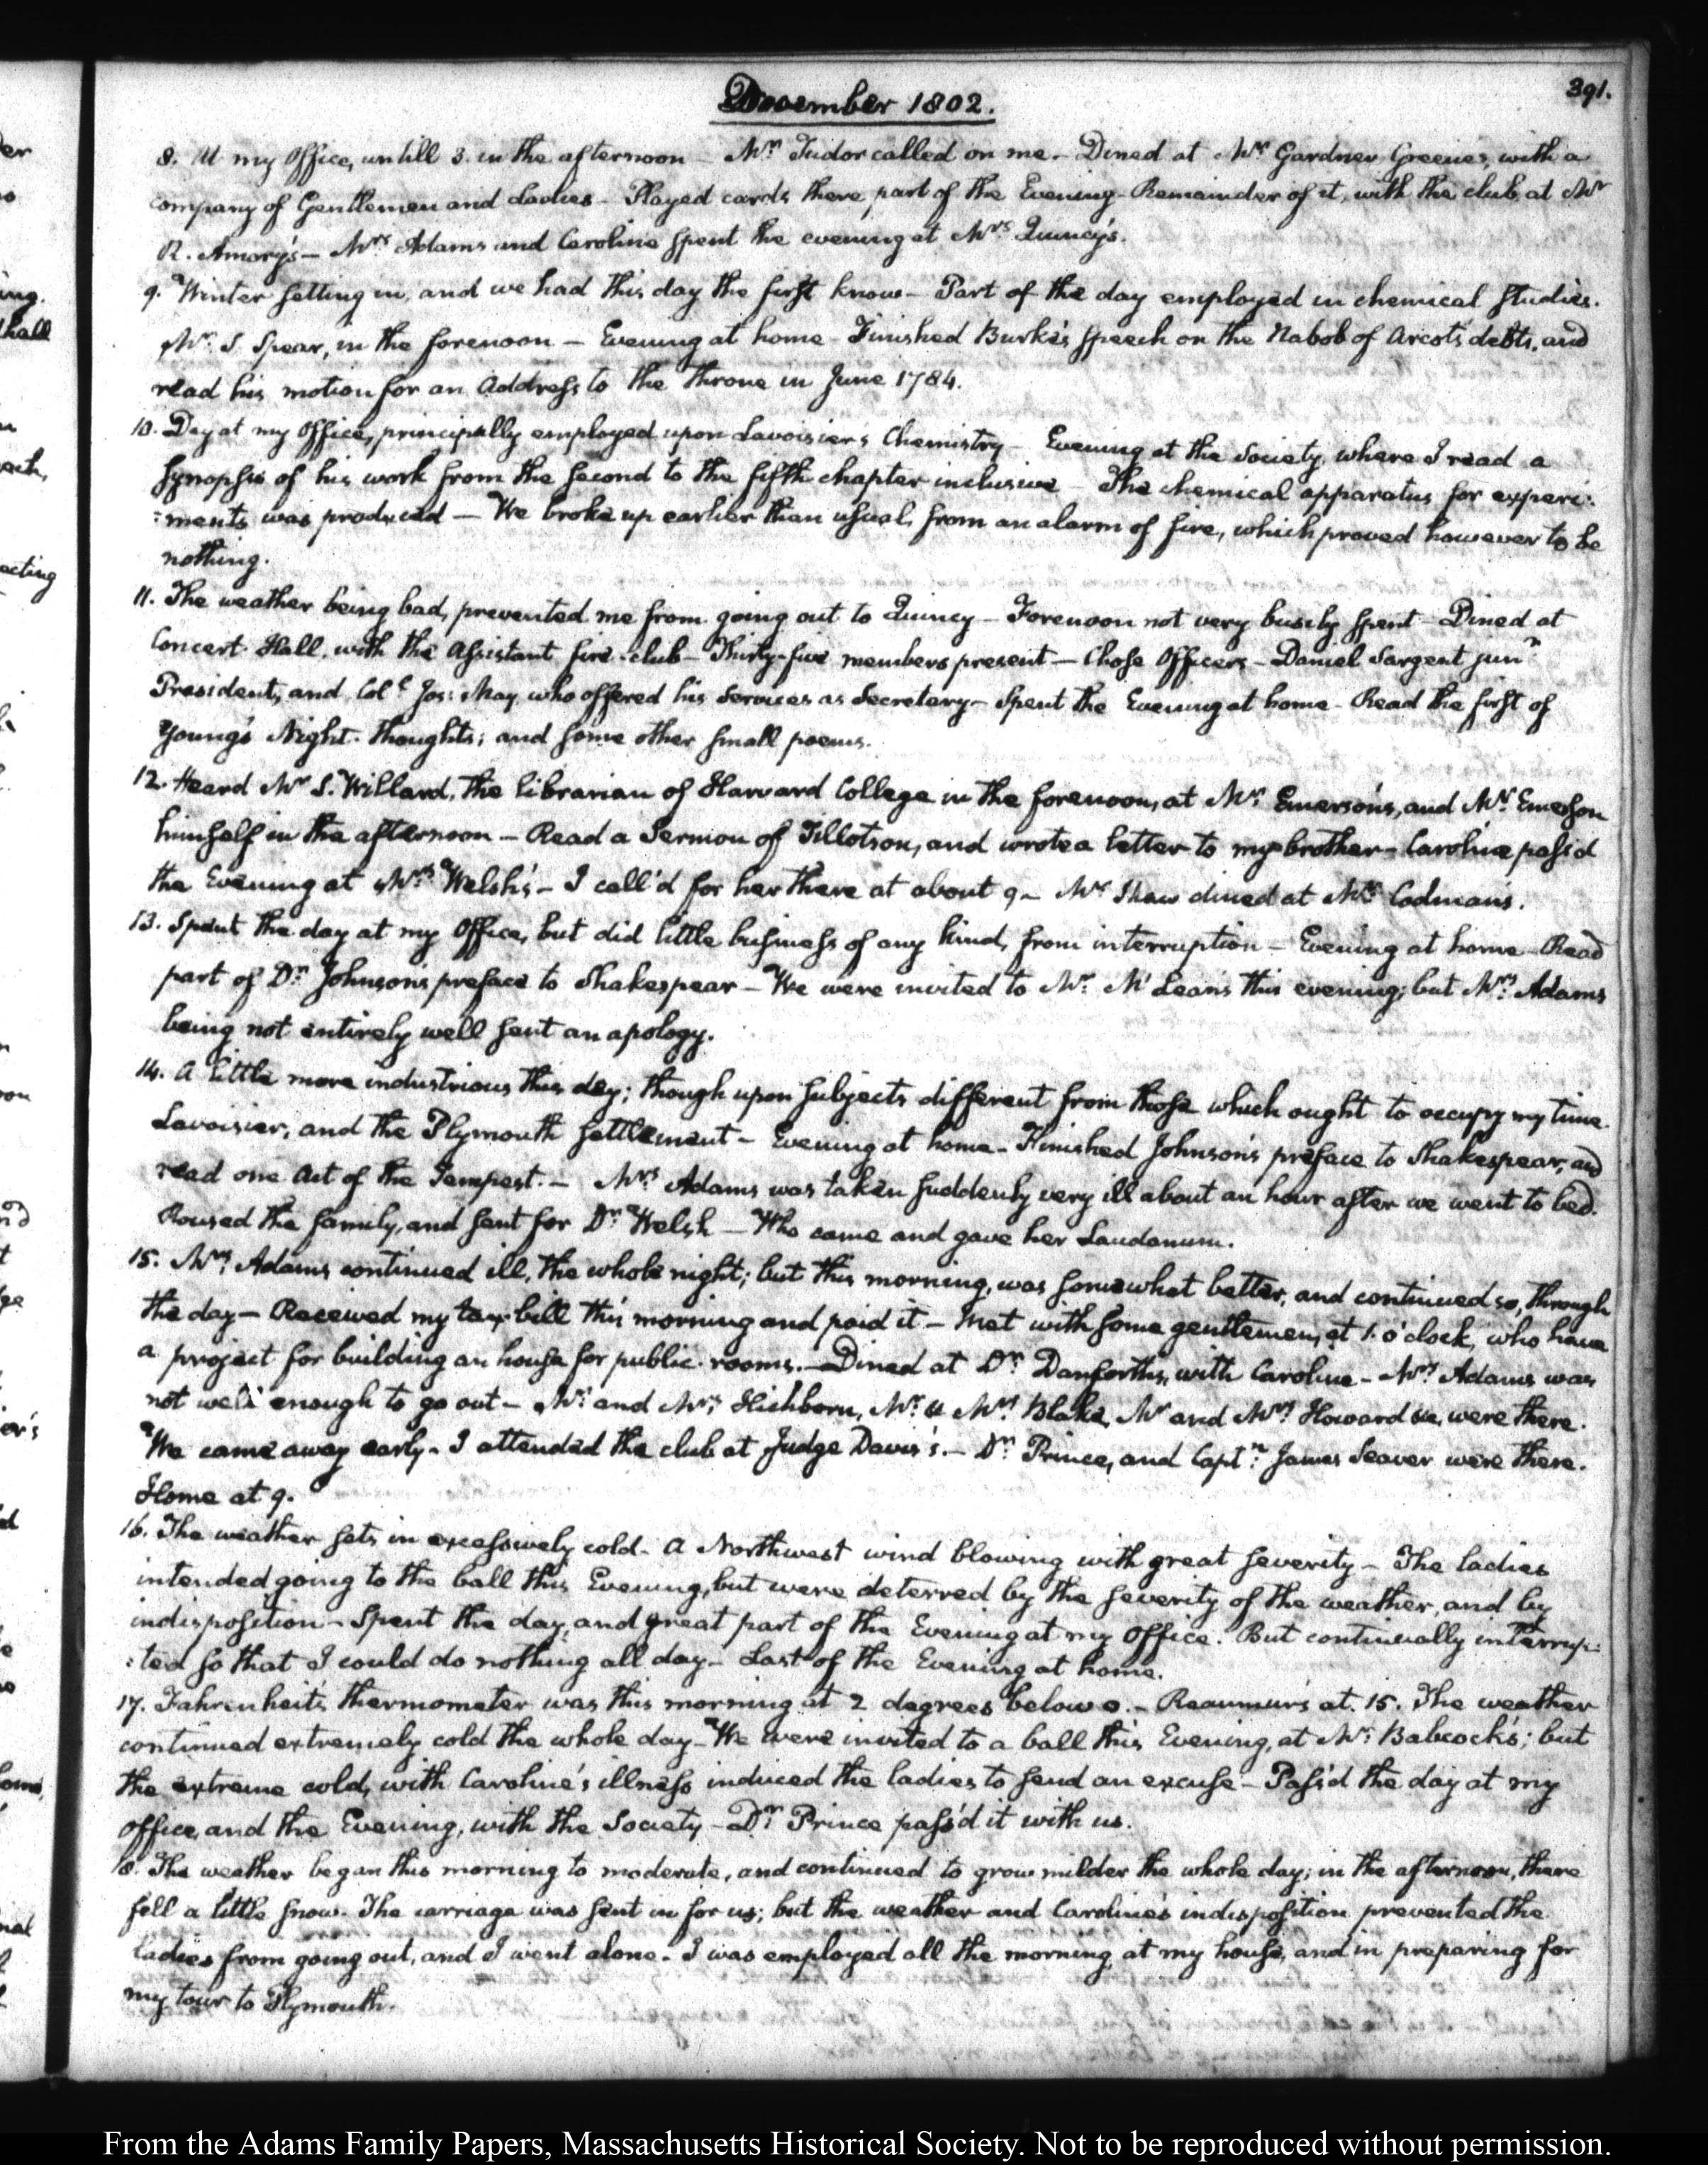 391.
December 1802.
8. At my Office, untill 3. in the afternoon – Mr. Tudor called on me. Dined at Mr. Gardner Greene's, with a
company of Gentlemen and Ladies – Played cards there, part of the Evening – Remainder of it, with the club, at Mr
R. Amory's – Mrs. Adams and Caroline spent the evening at Mrs. Quincy's.
9. Winter setting in, and we had this day the first snow – Part of the day employed in chemical studies.
Mr. S. Spear, in the forenoon – Evening at home – Finished Burke's speech on the Nabob of Arcot's debts, and
read his motion for an Address to the throne in June 1784.
10. Day at my Office, principally employed upon Lavoisier's Chemistry – Evening at the Society, where I read a
synopsis of his work from the second to the fifth chapter inclusive – The chemical apparatus for experi:
:ments was produced – We broke up earlier than usual, from an alarm of fire, which proved however to be
nothing.
11. The weather being bad, prevented me from going out to Quincy – Forenoon not very busily spent – Dined at
Concert-Hall, with the Assistant fire-club – Thirty-five members present – Chose Officers – Daniel Sargent junr.
President, and Coll. Jos: May, who offered his services as Secretary – Spent the Evening at home – Read the first of
Young's Night-thoughts; and some other small poems.
12. Heard Mr S. Willard, the librarian of Harvard College in the forenoon, at Mr. Emerson's, and Mr. Emerson
himself in the afternoon – Read a Sermon of Tillotson, and wrote a letter to my brother – Caroline pass'd
the Evening at Mrs. Welsh's – I call'd for her there at about 9 – Mr Shaw dined at Mr. Codman's.
13. Spent the day at my Office, but did little business of any kind, from interruption – Evening at home – Read
part of Dr. Johnson's preface to Shakespear – We were invited to Mr. McLean's this evening; but Mrs. Adams
being not entirely well sent an apology.
14. A little more industrious this day; though upon subjects different from those which ought to occupy my time.
Lavoisier, and the Plymouth settlement – Evening at home – Finished Johnson's preface to Shakespear, and
read one Act of the Tempest. – Mrs. Adams was taken suddenly very ill about an hour after we went to bed.
Roused the family, and sent for Dr. Welsh – Who came and gave her Laudanum.
15. Mrs. Adams continued ill, the whole night; but this morning, was somewhat better, and continued so, through
the day – Received my tax-bill this morning and paid it – Met with some gentlemen, at 1. o'clock, who have
a project for building an house for public rooms. – Dined at Dr. Danforth's, with Caroline – Mrs. Adams was
not well enough to go out – Mr. and Mrs. Hichborn, Mr. & Mrs. Blake, Mr and Mrs. Howard &c, were there.
We came away early – I attended the club at Judge Davis's. – Dr. Prince, and Captn. James Seaver were there.
Home at 9.
16. The weather sets in excessively cold – A Northwest wind blowing with great severity – The ladies
intended going to the ball this Evening, but were deterred by the severity of the weather, and by
indisposition – Spent the day, and great part of the Evening at my Office. But continually interrup:
:ted so that I could do nothing all day – Last of the Evening at home.
17. Fahrenheit's thermometer was this morning at 2 degrees below 0. – Reaumur's at. 15. The weather
continued extremely cold the whole day – We were invited to a ball this Evening, at Mr. Babcock's; but
the extreme cold, with Caroline's illness induced the ladies to send an excuse – Pass'd the day at my
Office, and the Evening, with the Society – Dr. Prince pass'd it with us.
18. The weather began this morning to moderate, and continued to grow milder the whole day; in the afternoon, there
fell a little snow. The carriage was sent in for us; but the weather and Caroline's indisposition prevented the
ladies from going out, and I went alone – I was employed all the morning, at my house, and in preparing for
my tour to Plymouth.
From the Adams Family Papers, Massachusetts Historical Society. Not to be reproduced without permission.